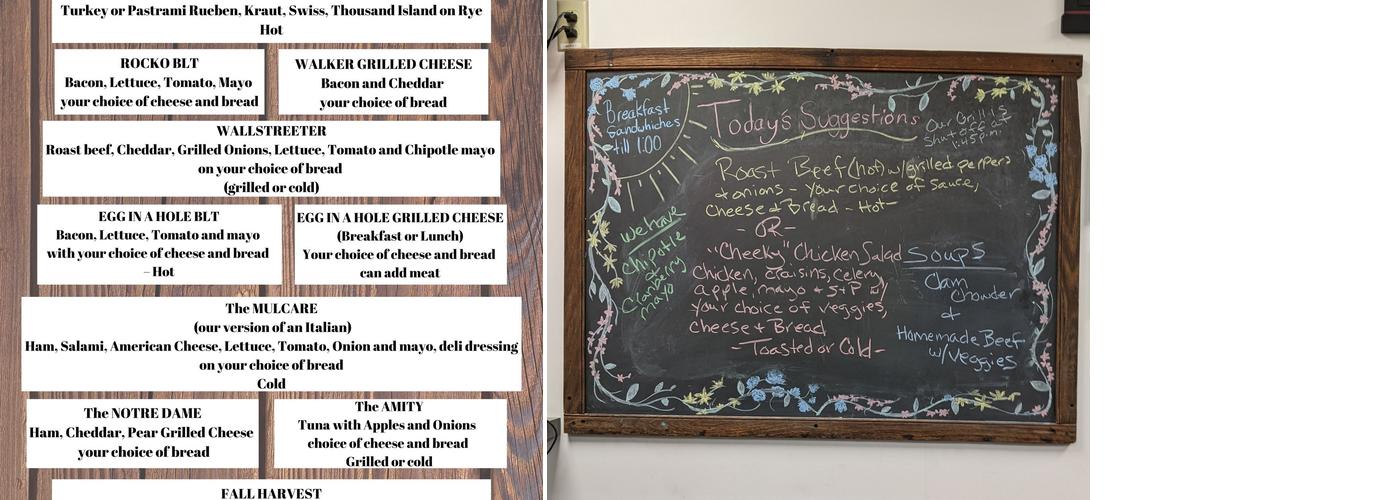 Turkey or Pastrami Rueben, Kraut, Swiss, Thousand Island on Rye
Hot
ROCKO BLT
Bacon, Lettuce, Tomato, Mayo
your choice of cheese and bread
WALKER GRILLED CHEESE
Bacon and Cheddar
your choice of bread
WALLSTREETER
Roast beef, Cheddar, Grilled Onions, Lettuce, Tomato and Chipotle mayo
on your choice of bread
(grilled or cold)
EGG IN A HOLE BLT
Bacon, Lettuce, Tomato and mayo
with your choice of cheese and bread
– Hot
EGG IN A HOLE GRILLED CHEESE
(Breakfast or Lunch)
Your choice of cheese and bread
can add meat
The MULCARE
(our version of an Italian)
Ham, Salami, American Cheese, Lettuce, Tomato, Onion and mayo, deli dressing
on your choice of bread
Cold
The NOTRE DAME
Ham, Cheddar, Pear Grilled Cheese
your choice of bread
The AMITY
Tuna with Apples and Onions
choice of cheese and bread
Grilled or cold
FALL HARVEST
Breakfast
Sandwhiches
till 1:00
Today's Suggestions
Our Grill is
Shut off @
1:45pm
Roast Beef (hot) w/grilled peppers
& onions - your choice of sauce,
cheese & Bread - Hot-
- OR -
"Cheeky" Chicken Salad
Chicken, Craisins, celery
apple, mayo + S+P w/
your choice of veggies,
cheese + Bread
- Toasted or Cold -
we have
Chipotle
&
Cranberry
mayo
Soups
Clam
Chowder
&
Homemade Beef
w/Veggies